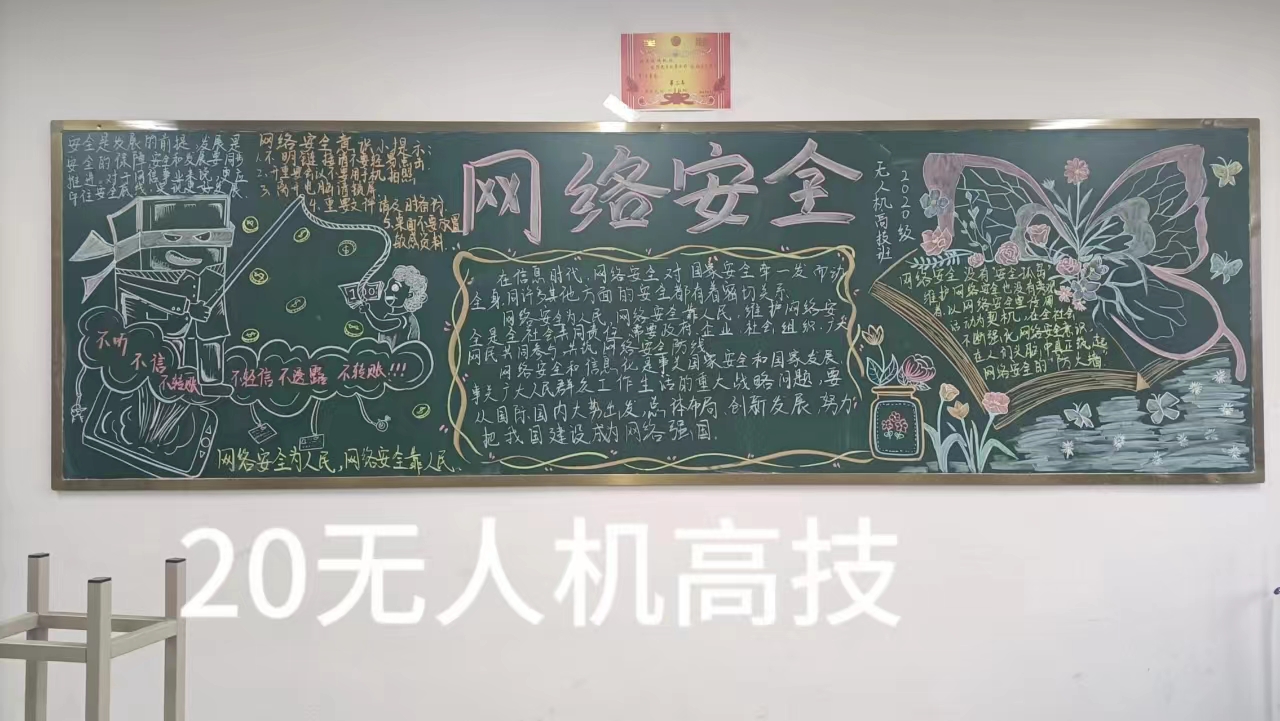 安全是发展的前提，发展是
安全的保障，安全和发展要同步
推进，对于网信事业来说，更应
网络安全意识小提示：
1. 不明链接附件要轻易点击
2. 重要不要用手机拍照
3. 离开电脑请锁屏
4. 重要文件请及时备份
5. 桌面不要放置
敏感资料
网络安全
无人机高技班
2020级
不听
不信
不转账
不轻信 不透露 不转账!!!
网络安全为人民，网络安全靠人民、
在信息时代，网络安全对国家安全牵一发而动
全身，同许多其他方面的安全都有着密切关系。
网络安全为人民，网络安全靠人民，维护网络安
全是全社会共同责任，需要政府、企业、社会组织、广大
网民共同参与，共筑网络安全防线。
网络安全和信息化是事关国家安全和国家发展、
事关广大人民群众工作生活的重大战略问题，要
从国际国内大势出发，总体布局，创新发展，努力
把我国建设成为网络强国。
网络安全没有安全孤岛
维护网络安全也没有
以网络安全宣传周
活动为契机，在全社会
不断强化网络安全意识，
在人们头脑中真正筑起
网络安全的“防火墙”
20无人机高技